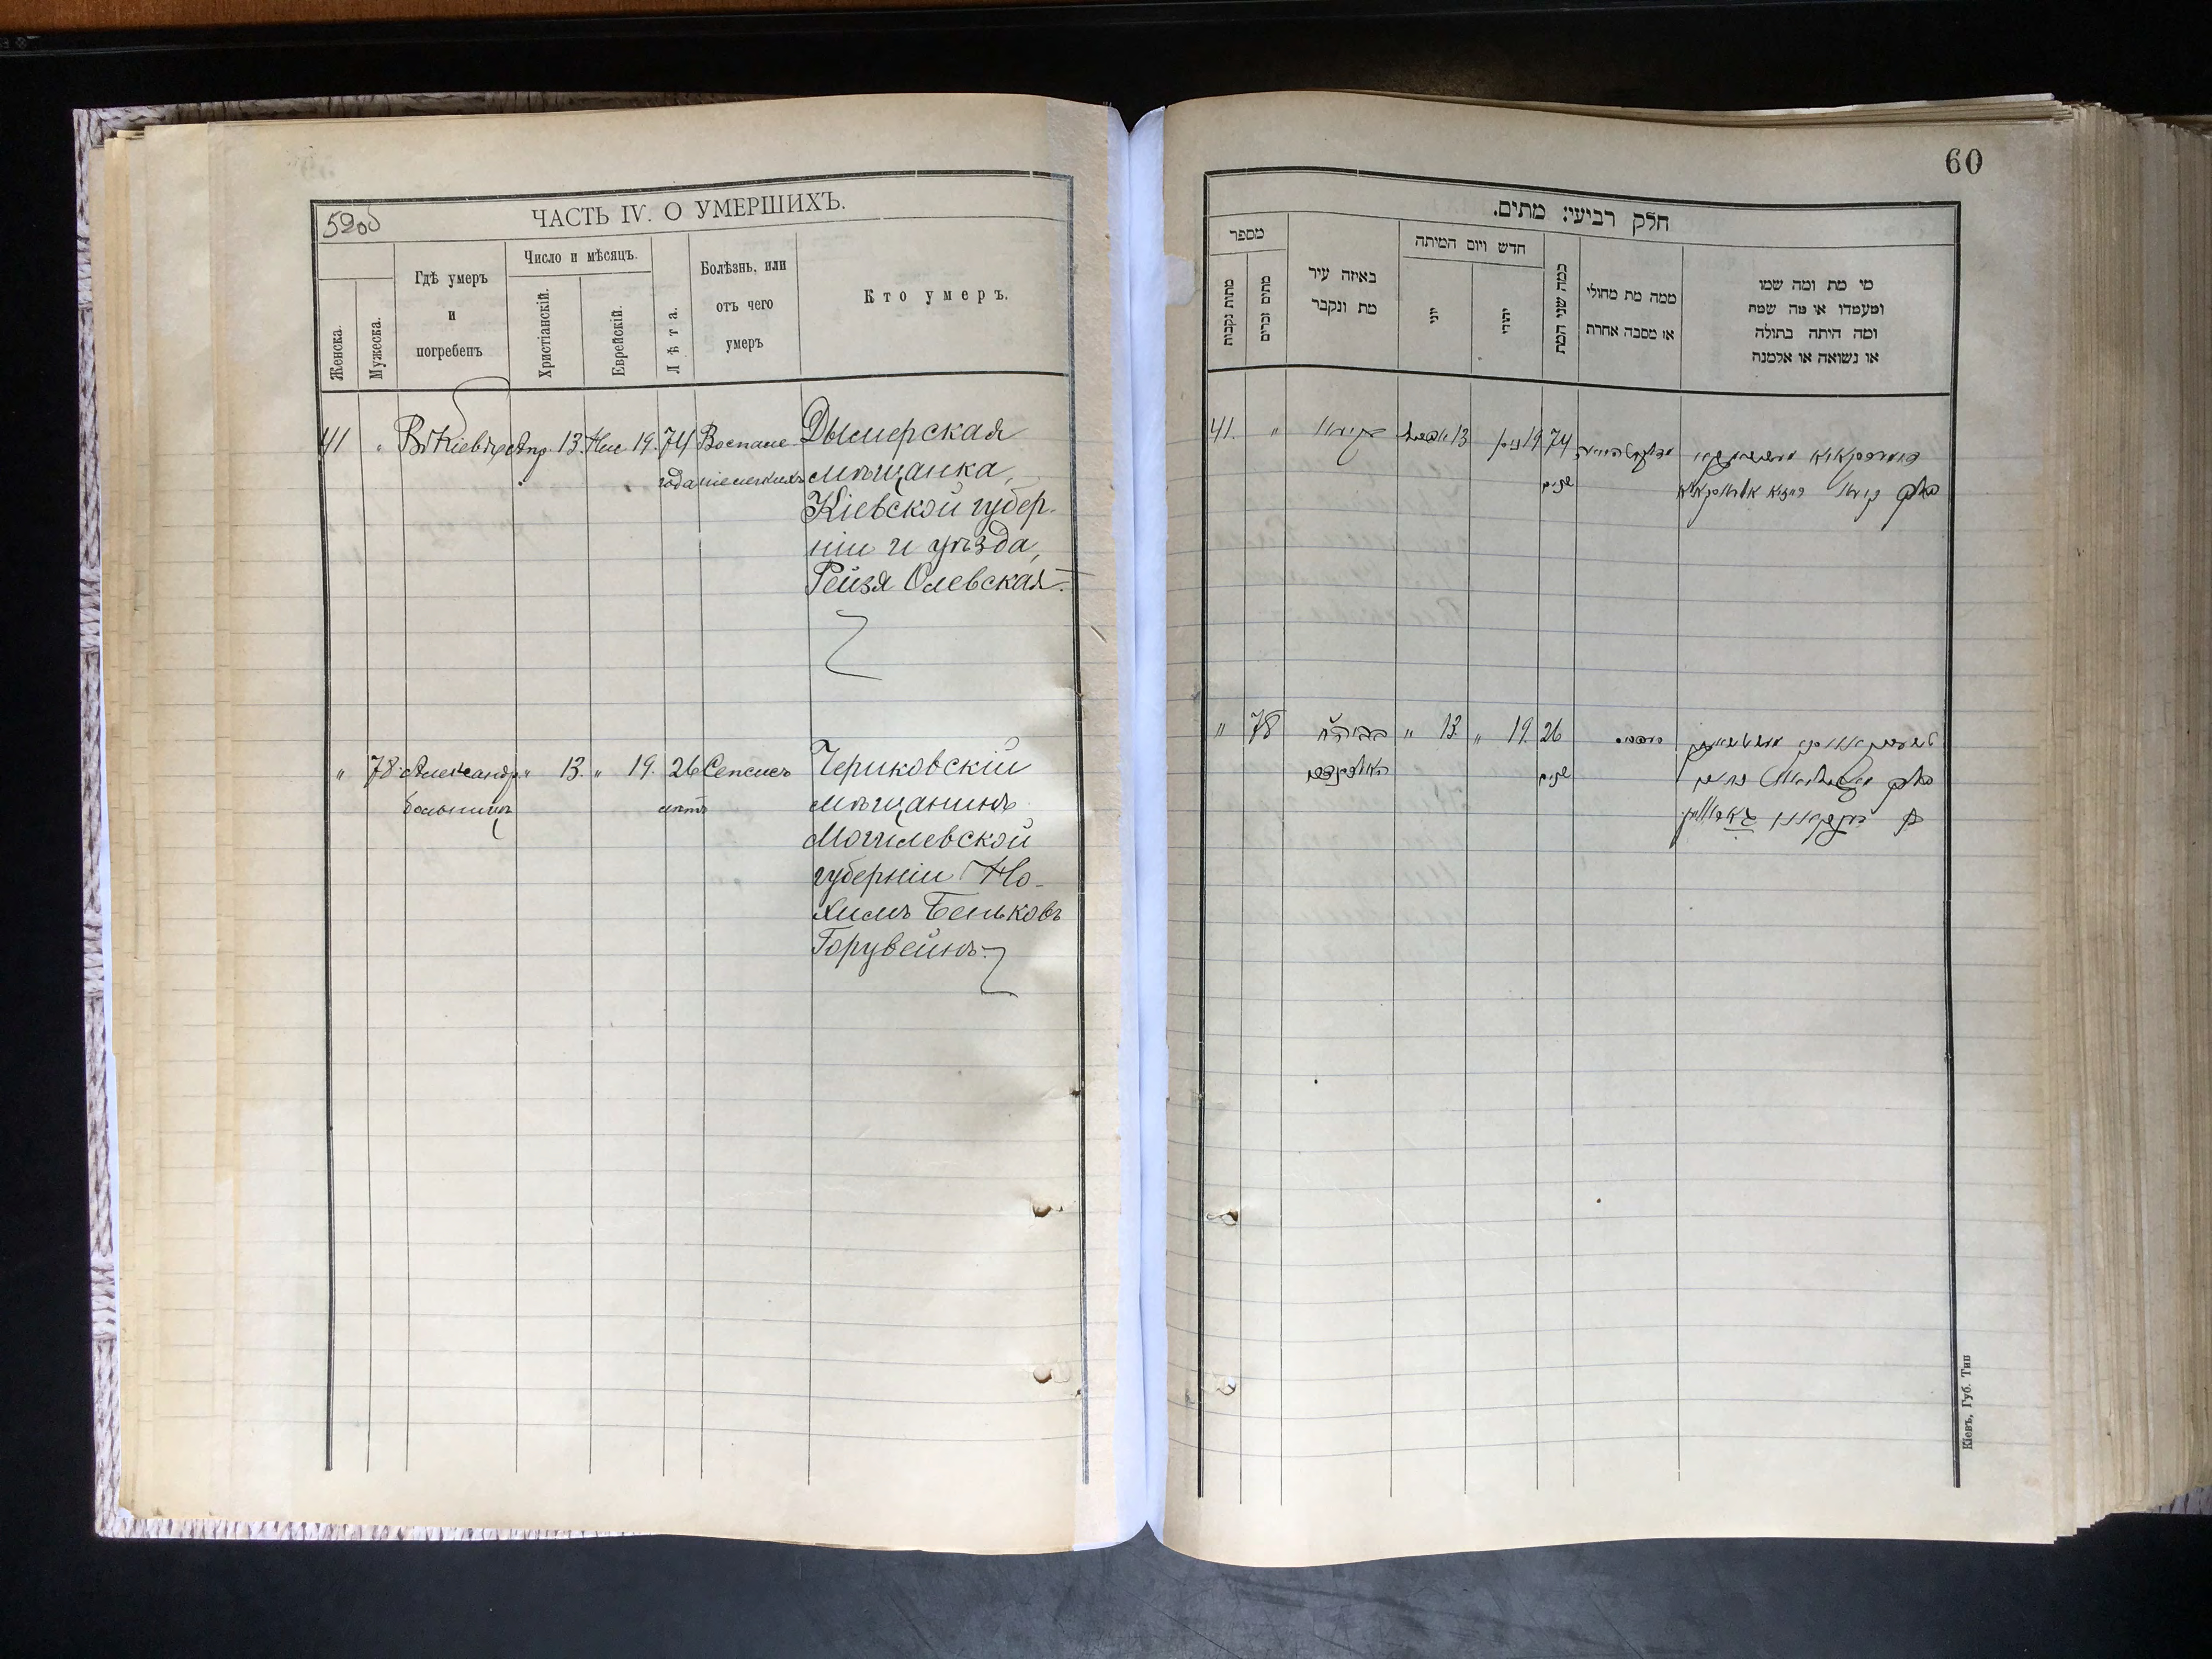 59об
ЧАСТЬ IV. О УМЕРШИХЪ.
Женска.
Мужеска.
Гдѣ умеръ
и
погребенъ
Число и мѣсяцъ.
Христіанскій.
Еврейскій.
Лѣта.
Болѣзнь, или
отъ чего
умеръ
Кто умеръ.
41 " Въ Кіевѣ Апр. 13. Нис 19. 74 Воспале- Дымерская
года ніе легкихъ мѣщанка,
Кіевской губер-
ніи и уѣзда,
Рейзя Олевская.
" 78. Александр. " 13. " 19. 26 Сепсисъ Чериковскій
больницѣ лѣтъ мѣщанинъ
Могилевской
губерніи Но-
химъ Беньковъ
Горувейнъ.
60
חלק רביעי: מתים.
מספר
מתות נקבות
מתים זכרים
באיזה עיר
מת ונקבר
חדש ויום המיתה
יוני
יהודי
כמה שני המת
ממה מת מחולי
או מסבה אחרת
מי מת ומה שמו
ומעמדו או מה שמה
ומה היתה בתולה
או נשואה או אלמנה
41. " 13 19 ניסן 74
שנים
" 78 " 13. " 19. 26
שנים
Кіевъ, Губ. Тип